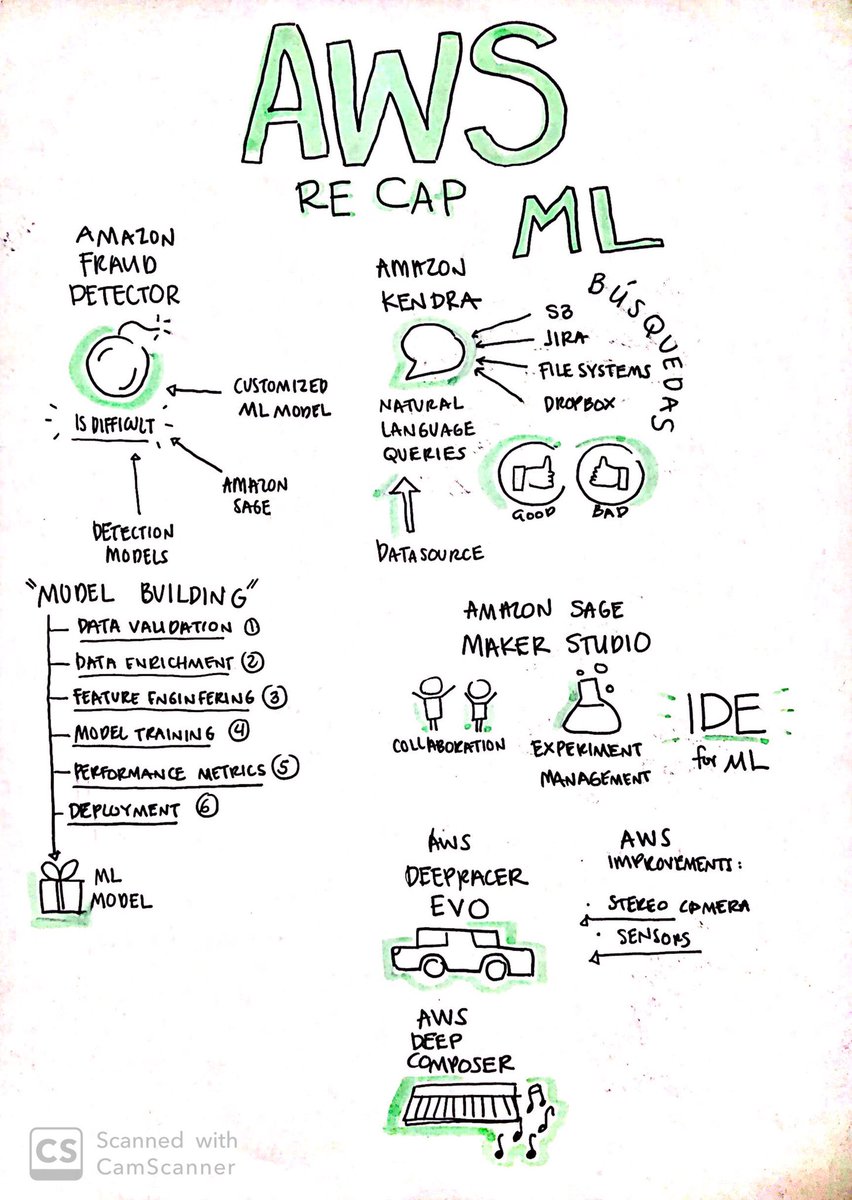 AWS
RE CAP
ML
AMAZON
FRAUD
DETECTOR
CUSTOMIZED
ML MODEL
IS DIFFICULT
AMAZON
SAGE
DETECTION
MODELS
"MODEL BUILDING"
DATA VALIDATION 1
DATA ENRICHMENT 2
FEATURE ENGINFERING 3
MODEL TRAINING 4
PERFORMANCE METRICS 5
DEPLOYMENT 6
ML
MODEL
AMAZON
KENDRA
BÚSQUEDAS
S3
JIRA
FILE SYSTEMS
DROPBOX
NATURAL
LANGUAGE
QUERIES
GOOD
BAD
DATASOURCE
AMAZON SAGE
MAKER STUDIO
COLLABORATION
EXPERIMENT
MANAGEMENT
IDE
for ML
AWS
DEEPRACER
EVO
AWS
IMPROVEMENTS:
· STEREO CAMERA
· SENSORS
AWS
DEEP
COMPOSER
CS Scanned with
CamScanner